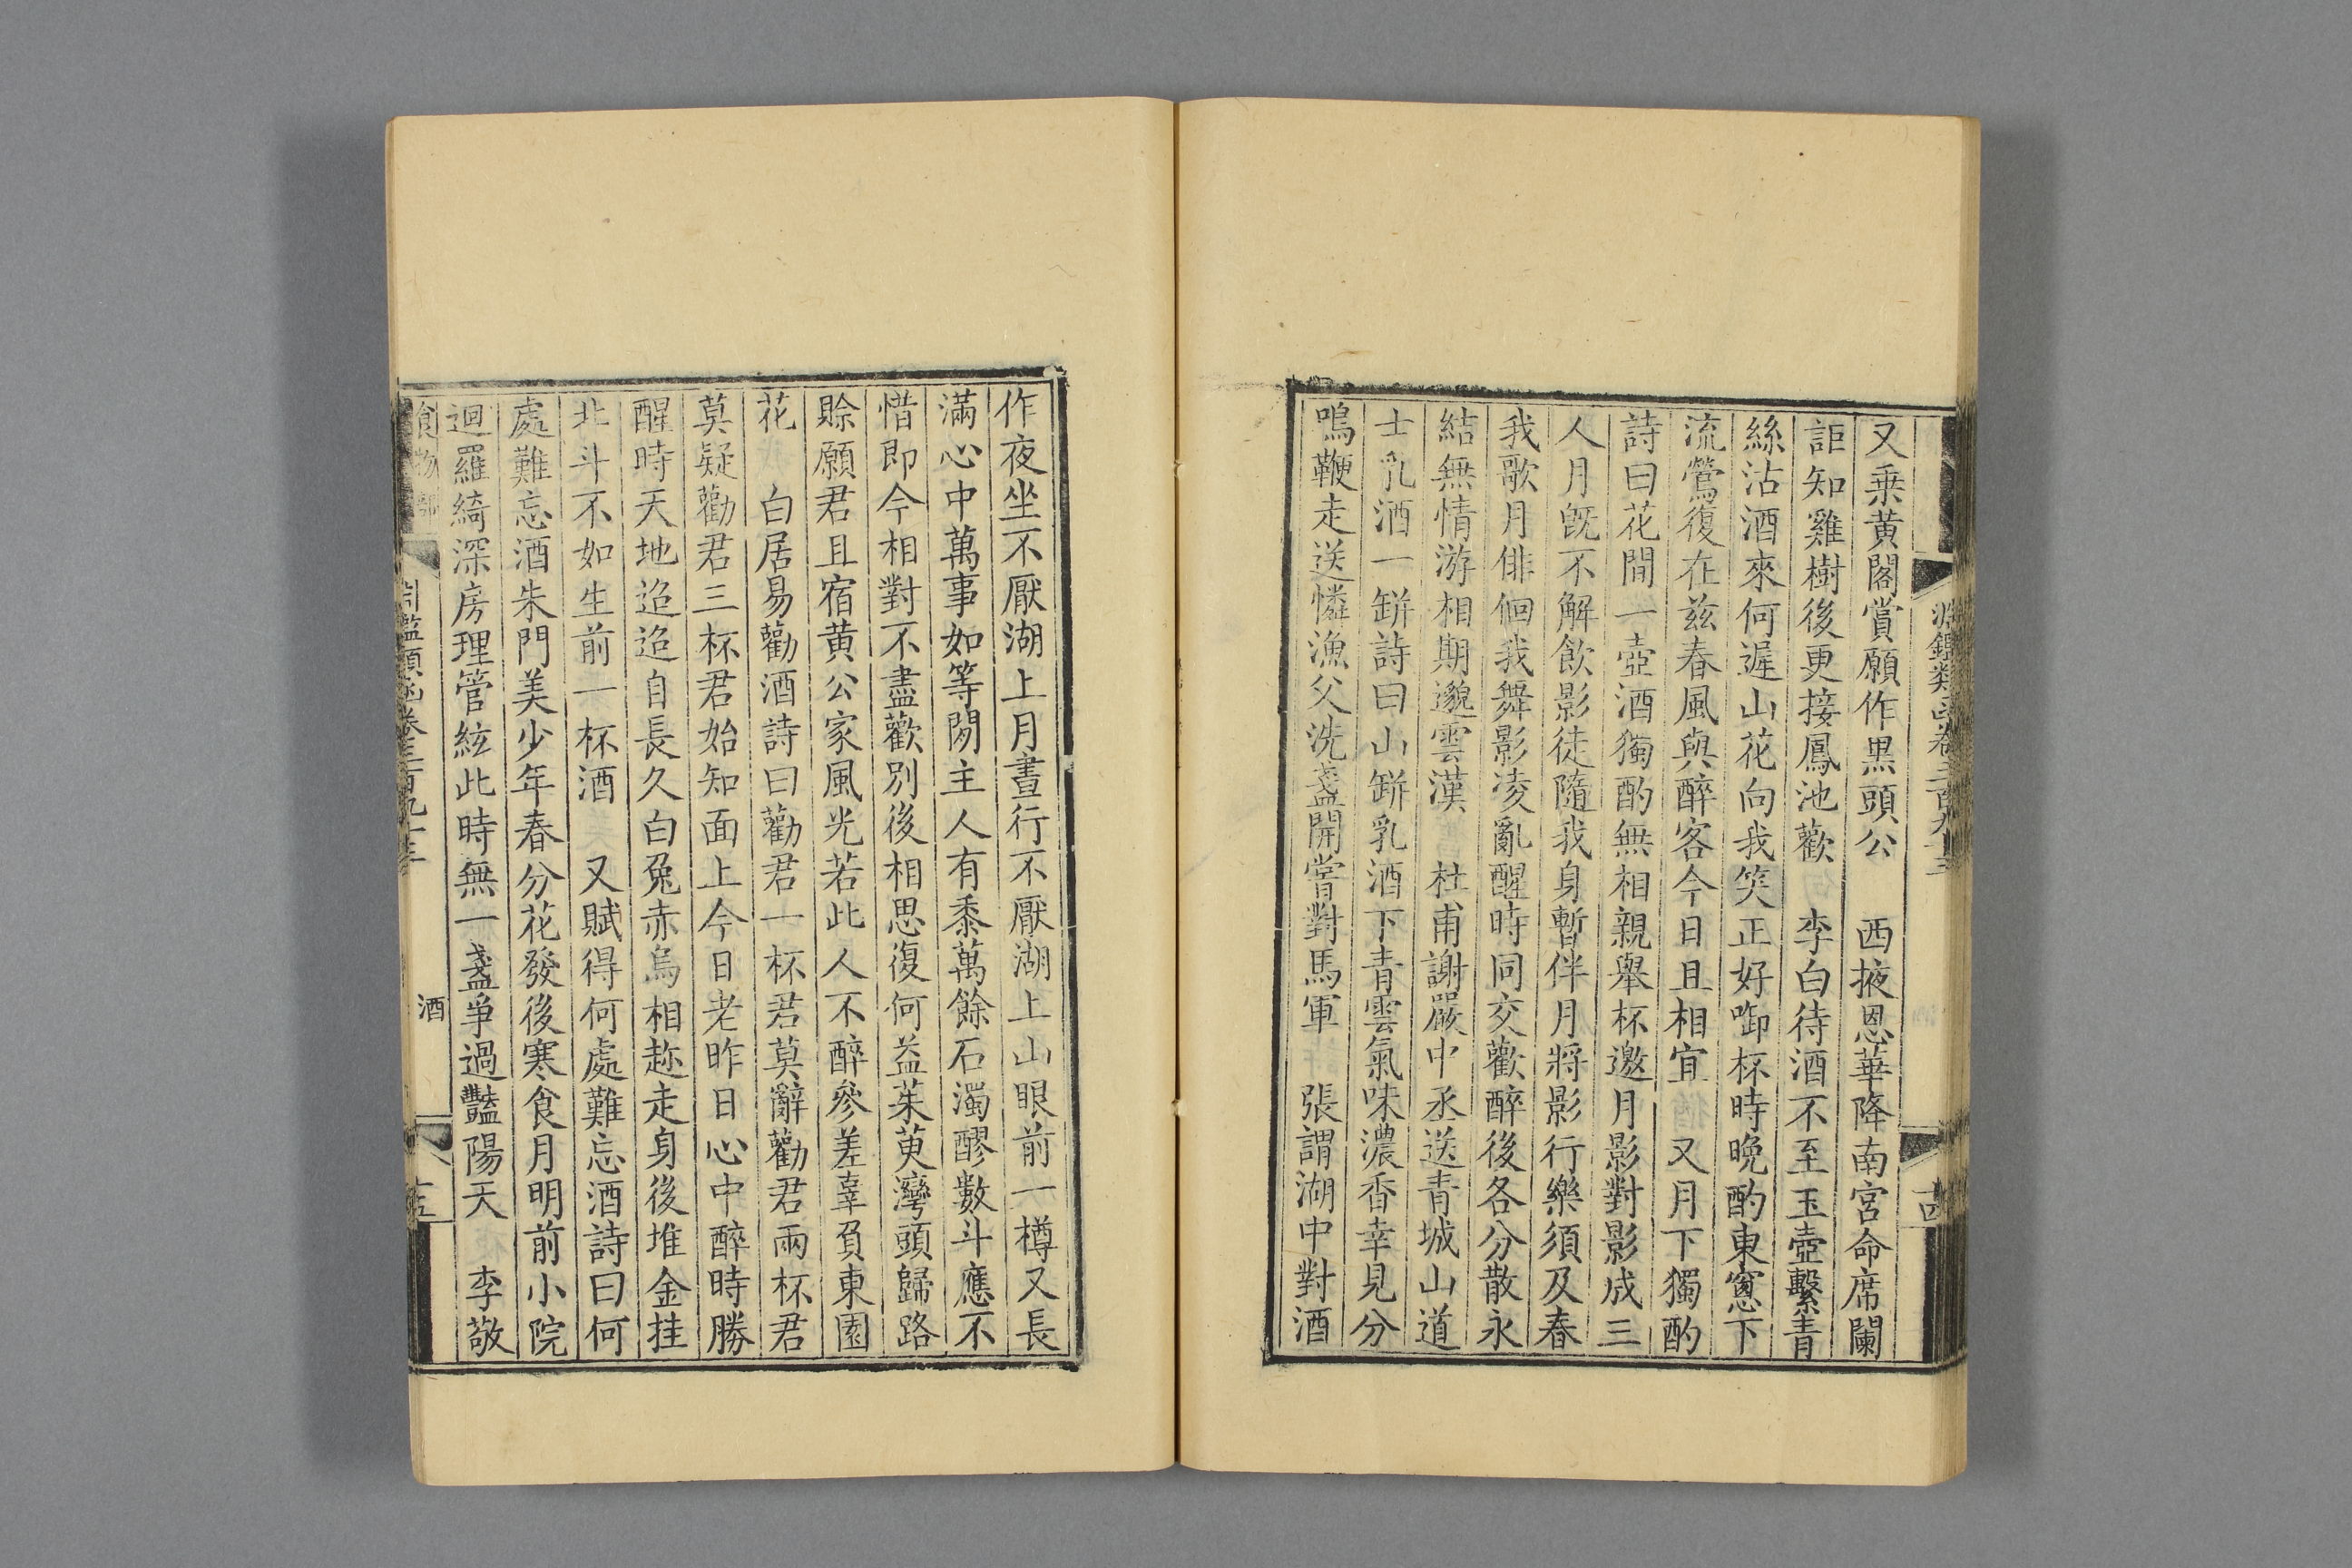 淵鑑類函卷三百九十三
十四
又乗黄閣賞願作黒頭公　西掖恩華降南宮命席闌
詎知雞樹後更接鳳池歡　李白待酒不至玉壺繫青
絲沽酒來何遲山花向我笑正好啣杯時晚酌東窻下
流鶯復在兹春風與醉客今日且相宜　又月下獨酌
詩曰花間一壺酒獨酌無相親舉杯邀月影對影成三
人月旣不解飲影徒隨我身暫伴月將影行樂須及春
我歌月俳佪我舞影凌亂醒時同交歡醉後各分散永
結無情游相期邈雲漢　杜甫謝嚴中丞送青城山道
士乳酒一缾詩曰山缾乳酒下青雲氣味濃香幸見分
嗚鞭走送憐漁父洗盞開嘗對馬軍　張謂湖中對酒
作夜坐不厭湖上月晝行不厭湖上山眼前一樽又長
滿心中萬事如等閒主人有黍萬餘石濁醪數斗應不
惜即今相對不盡歡別後相思復何益茱萸灣頭歸路
賒願君且宿黄公家風光若此人不醉參差辜負東園
花　白居易勸酒詩曰勸君一杯君莫辭勸君兩杯君
莫疑勸君三杯君始知面上今日老昨日心中醉時勝
醒時天地迢迢自長久白兔赤烏相趂走身後堆金挂
北斗不如生前一杯酒　又賦得何處難忘酒詩曰何
處難忘酒朱門美少年春分花發後寒食月明前小院
迴羅綺深房理管絃此時無一盞爭過豔陽天　李敬
食物部
淵鑑類函卷三百九十三
酒
十五